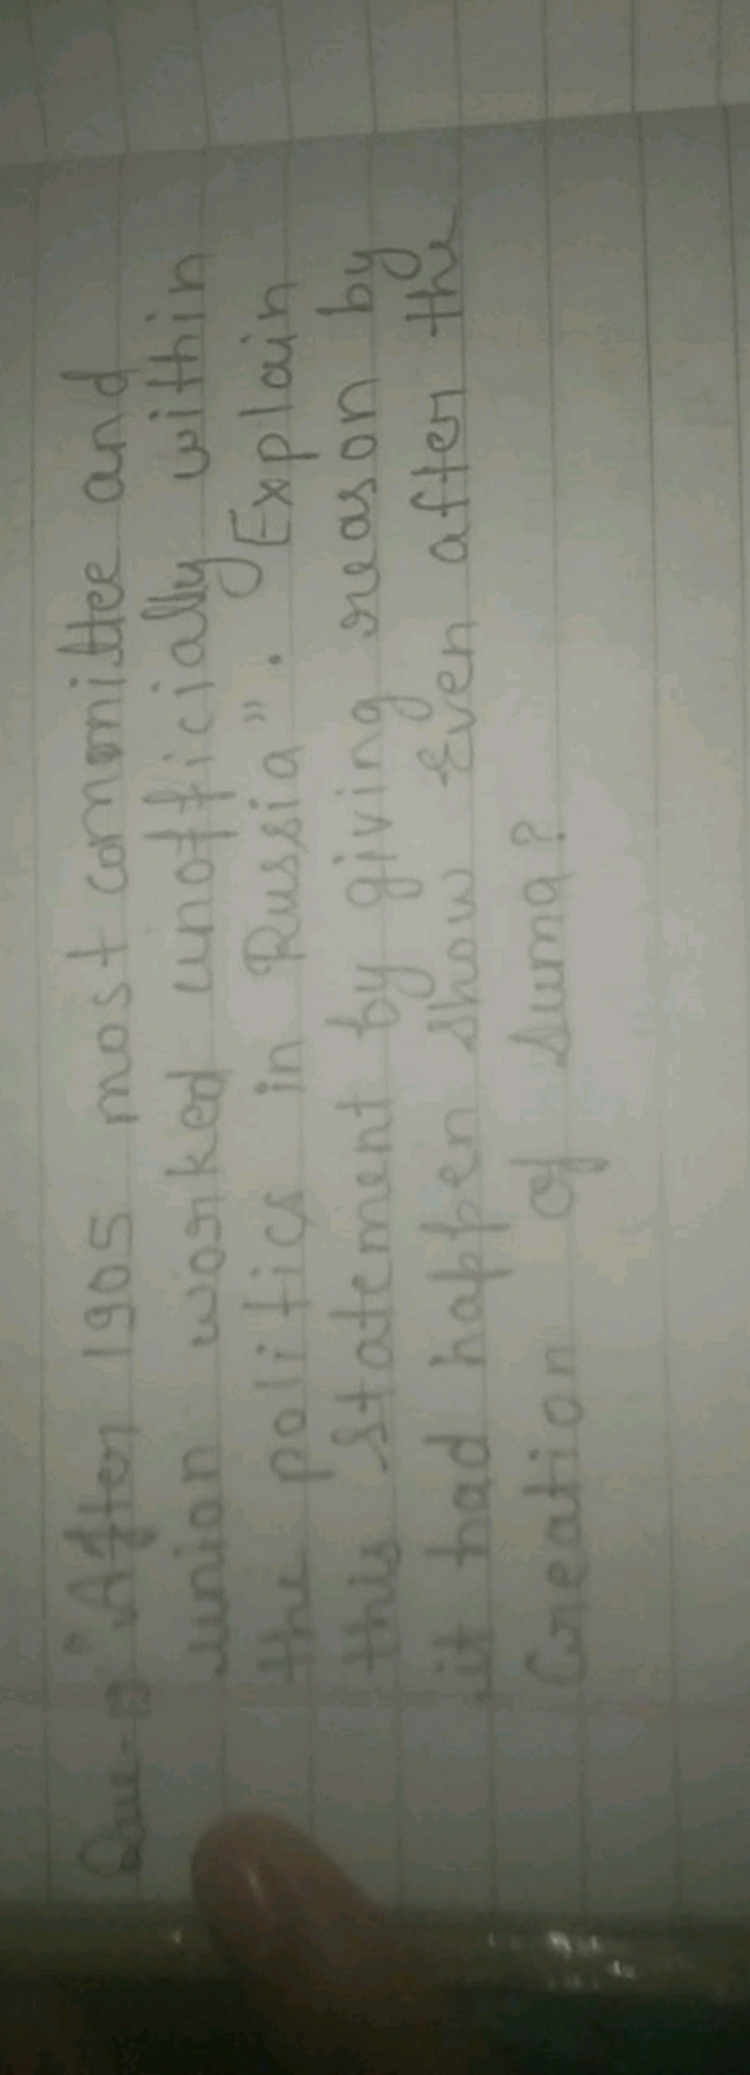 Que-13 "After 1905 most committee and
union worked unofficially within
the politics in Russia". Explain
this statement by giving reason by
it had happen show Even after the
Creation of Duma?